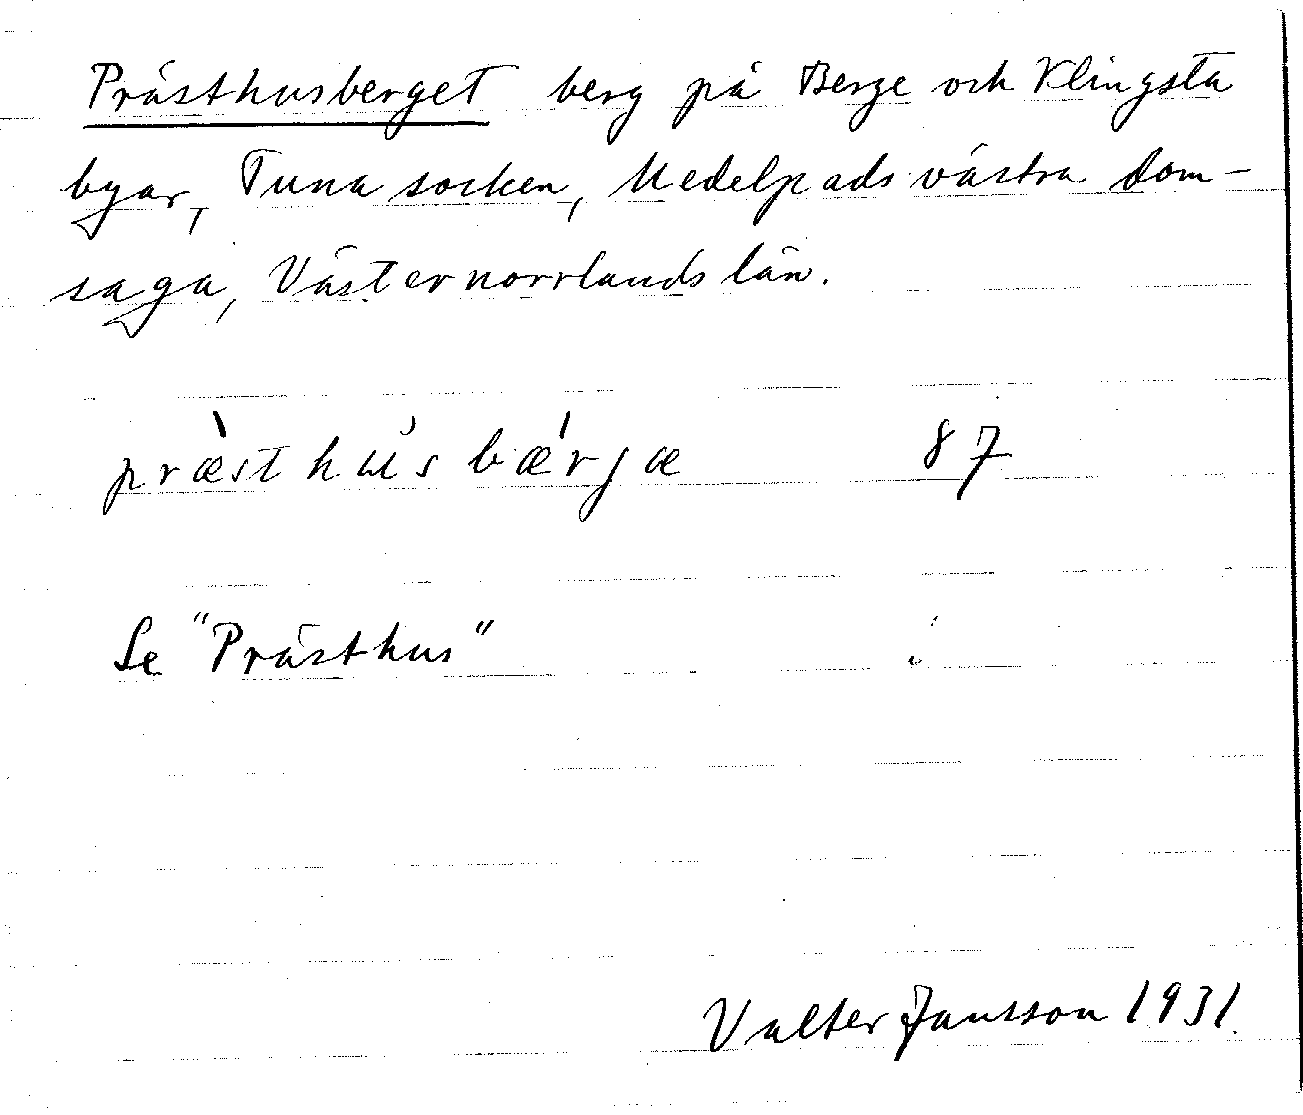 Prästhusberget berg på Berge och Klingsta
byar, Tuna socken, Medelpads västra dom-
saga, Västernorrlands län.
præ̀sthu̓sbæ̍rjæ 87
Se "Prästhus"
Valter Jansson 1931.